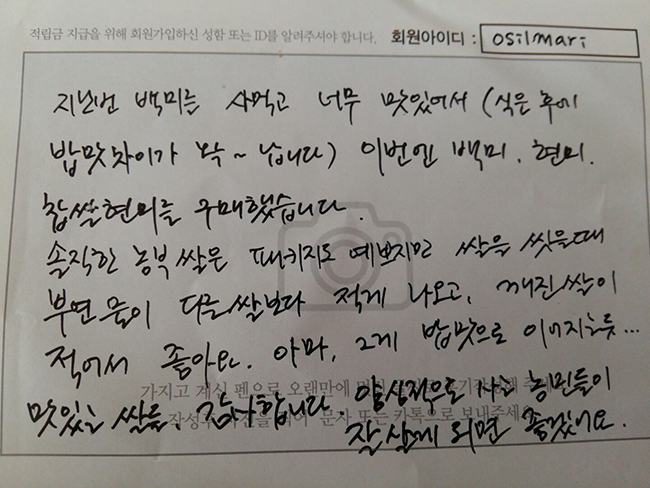 적립금 지급을 위해 회원가입하신 성함 또는 ID를 알려주셔야 합니다. 회원아이디 : osilmari
지난번 백미를 사먹고 너무 맛있어서 (식은 후에
밥맛차이가 딱~ 납니다) 이번엔 백미, 현미,
찹쌀현미를 구매했습니다.
솔직한 농부 쌀은 패키지도 예쁘지만 쌀을 씻을때
부연 물이 다른 쌀보다 적게 나오고, 깨진 쌀이
적어서 좋아요. 아마, 그게 밥맛으로 이어지는듯...
가지고 계신 펜으로 오랜만에
맛있는 쌀들, 감사합니다. 양심적으로 사는 농민들이
문자 또는 카톡으로 보내주세
잘 살게 되면 좋겠어요.